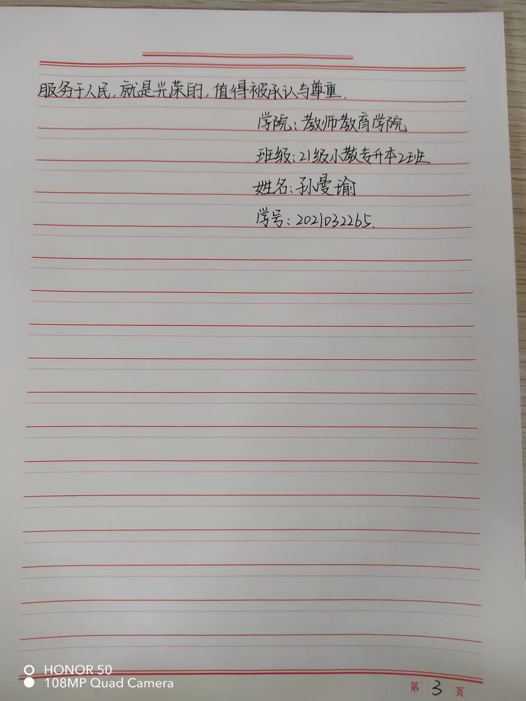 服务于人民,就是光荣的,值得被承认与尊重.
学院:教师教育学院
班级:21级小教专升本2班
姓名:孙曼谕
学号:2021032265.
第 3 页
HONOR 50
108MP Quad Camera